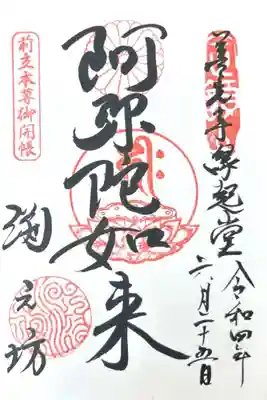 善光寺縁起堂
令和四年
六月二十五日
阿弥陀如来
前立本尊御開帳
淵之坊